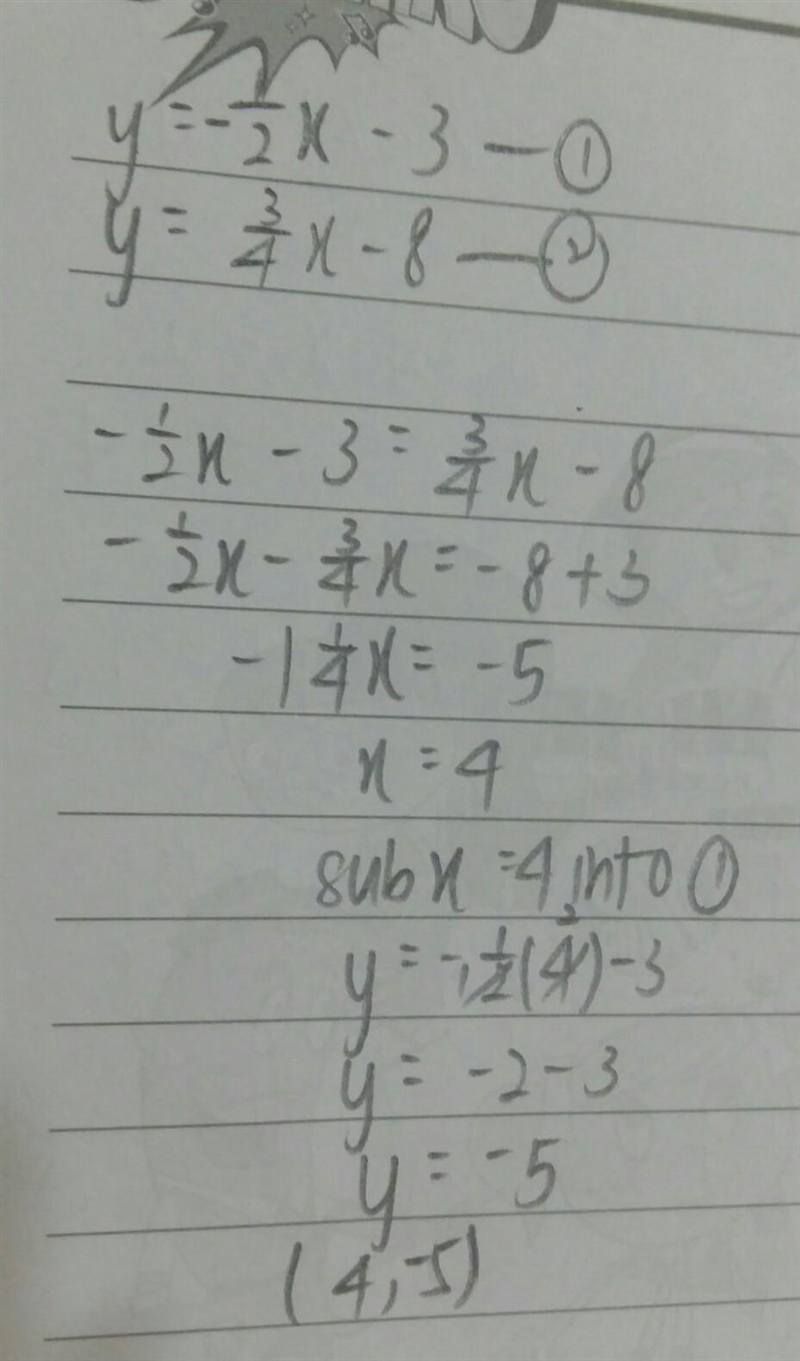 y = -1/2 x - 3 — ①
y = 3/4 x - 8 — ②
- 1/2 x - 3 = 3/4 x - 8
- 1/2 x - 3/4 x = - 8 + 3
- 1 1/4 x = - 5
x = 4
sub x = 4 into ①
2
y = - 1/2 (4) - 3
1
y = - 2 - 3
y = - 5
(4, -5)